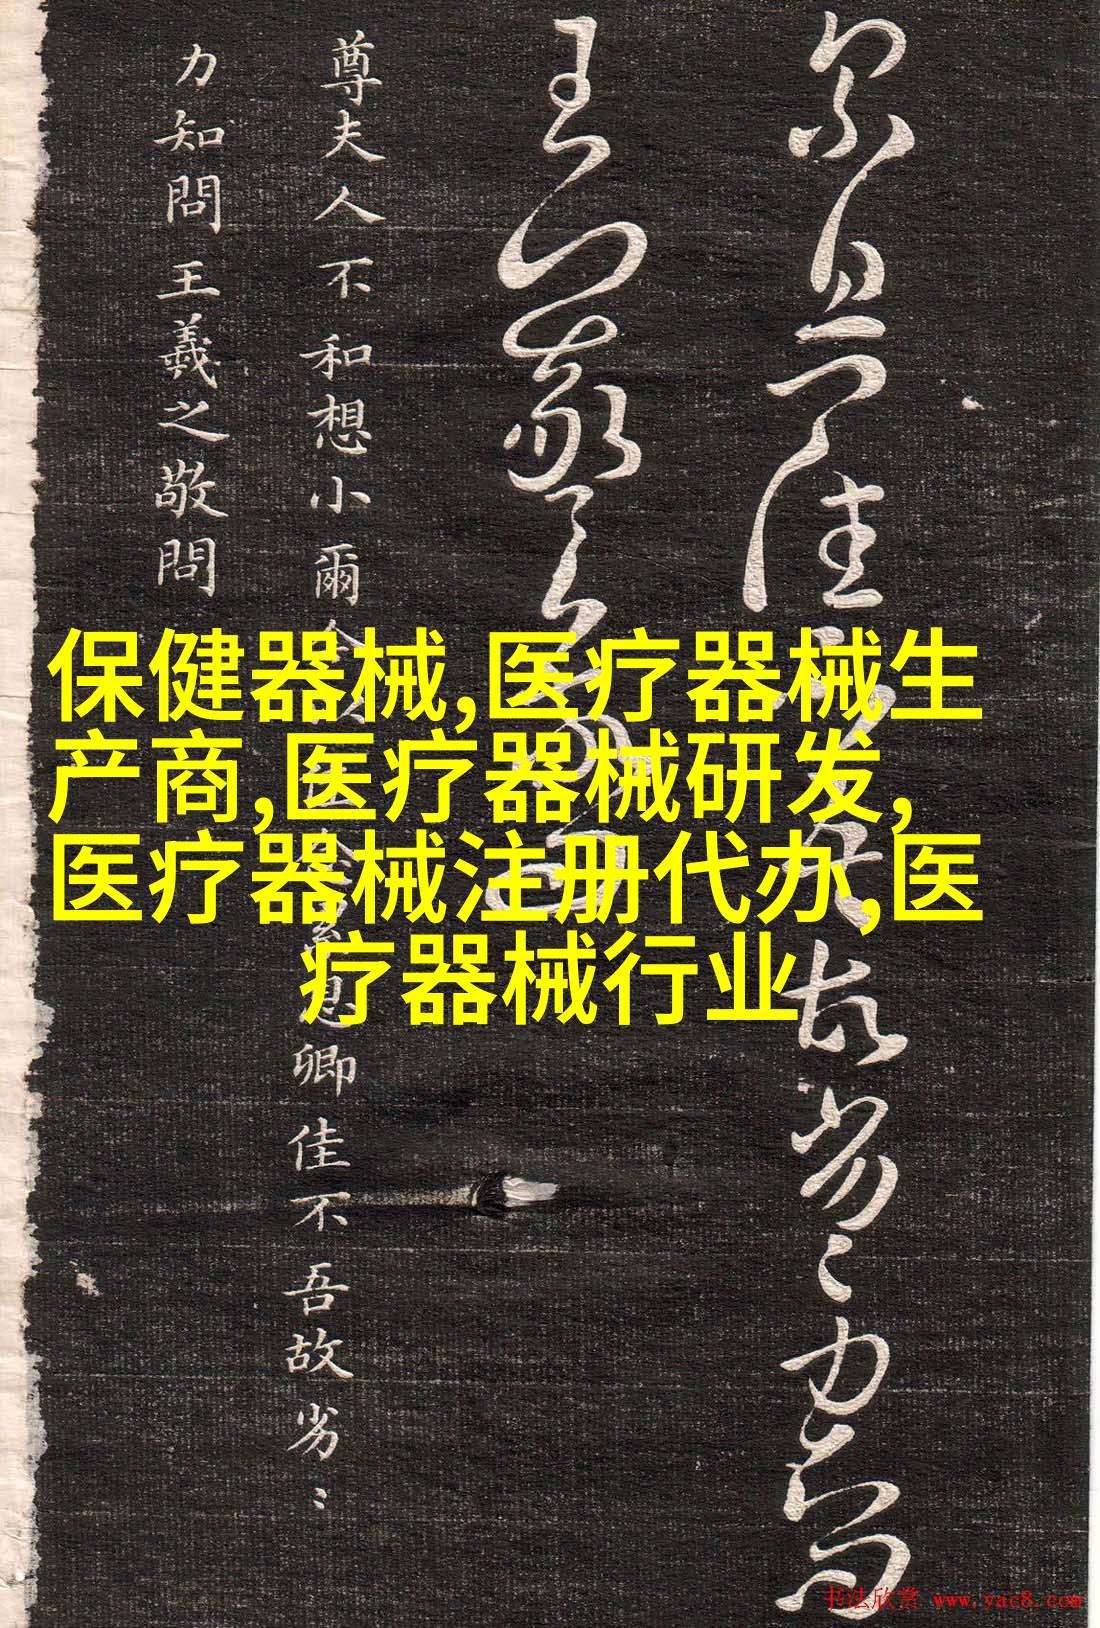 保健器械,医疗器械生
产商,医疗器械研发,
医疗器械注册代办,医
疗器械行业
佳故劣〻力知問
王羲之敬問
尊夫人不和想小爾卿佳不吾故劣〻
力知問王羲之敬問
书法欣赏 www.yac8.com